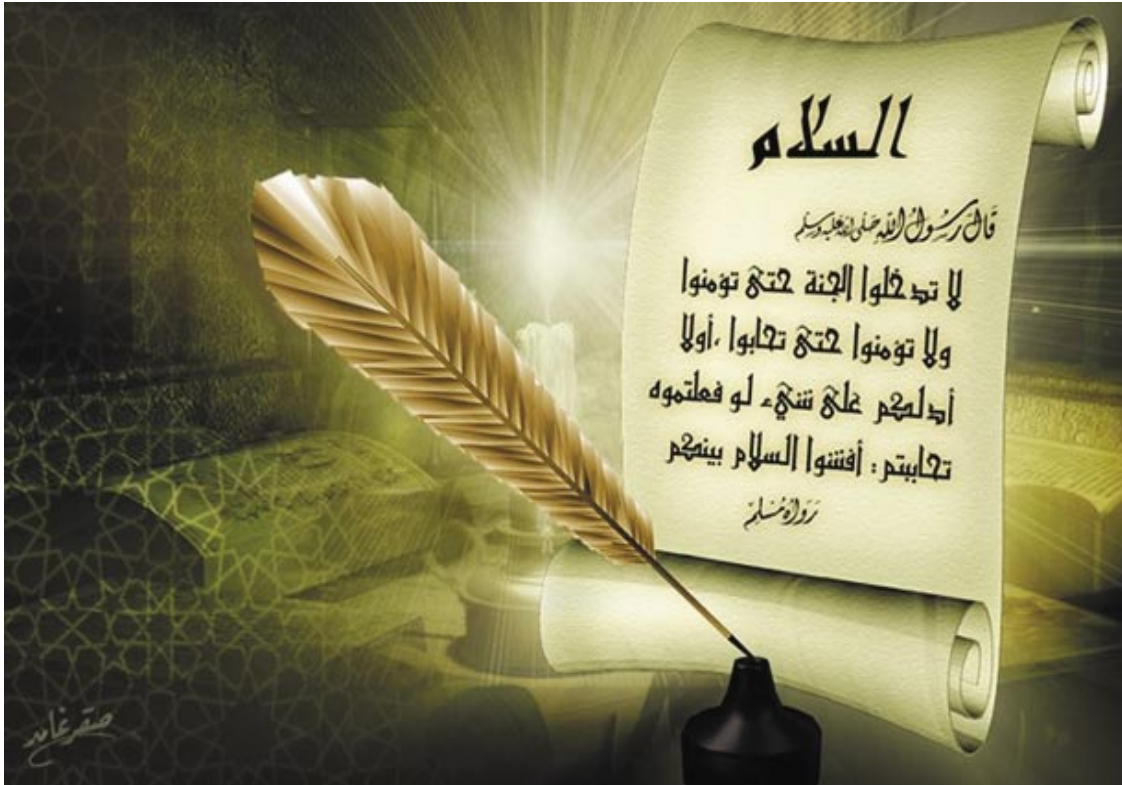 السلام
قَالَ رَسُولُ اللهِ صَلَّى اللهُ عَلَيْهِ وَسَلَّم
لا تدخلوا الجنة حتى تؤمنوا
ولا تؤمنوا حتى تحابوا ،أولا
أدلكم على شيء لو فعلتموه
تحاببتم : أفشوا السلام بينكم
رَوَاهُ مُسْلِم
صقر غامد